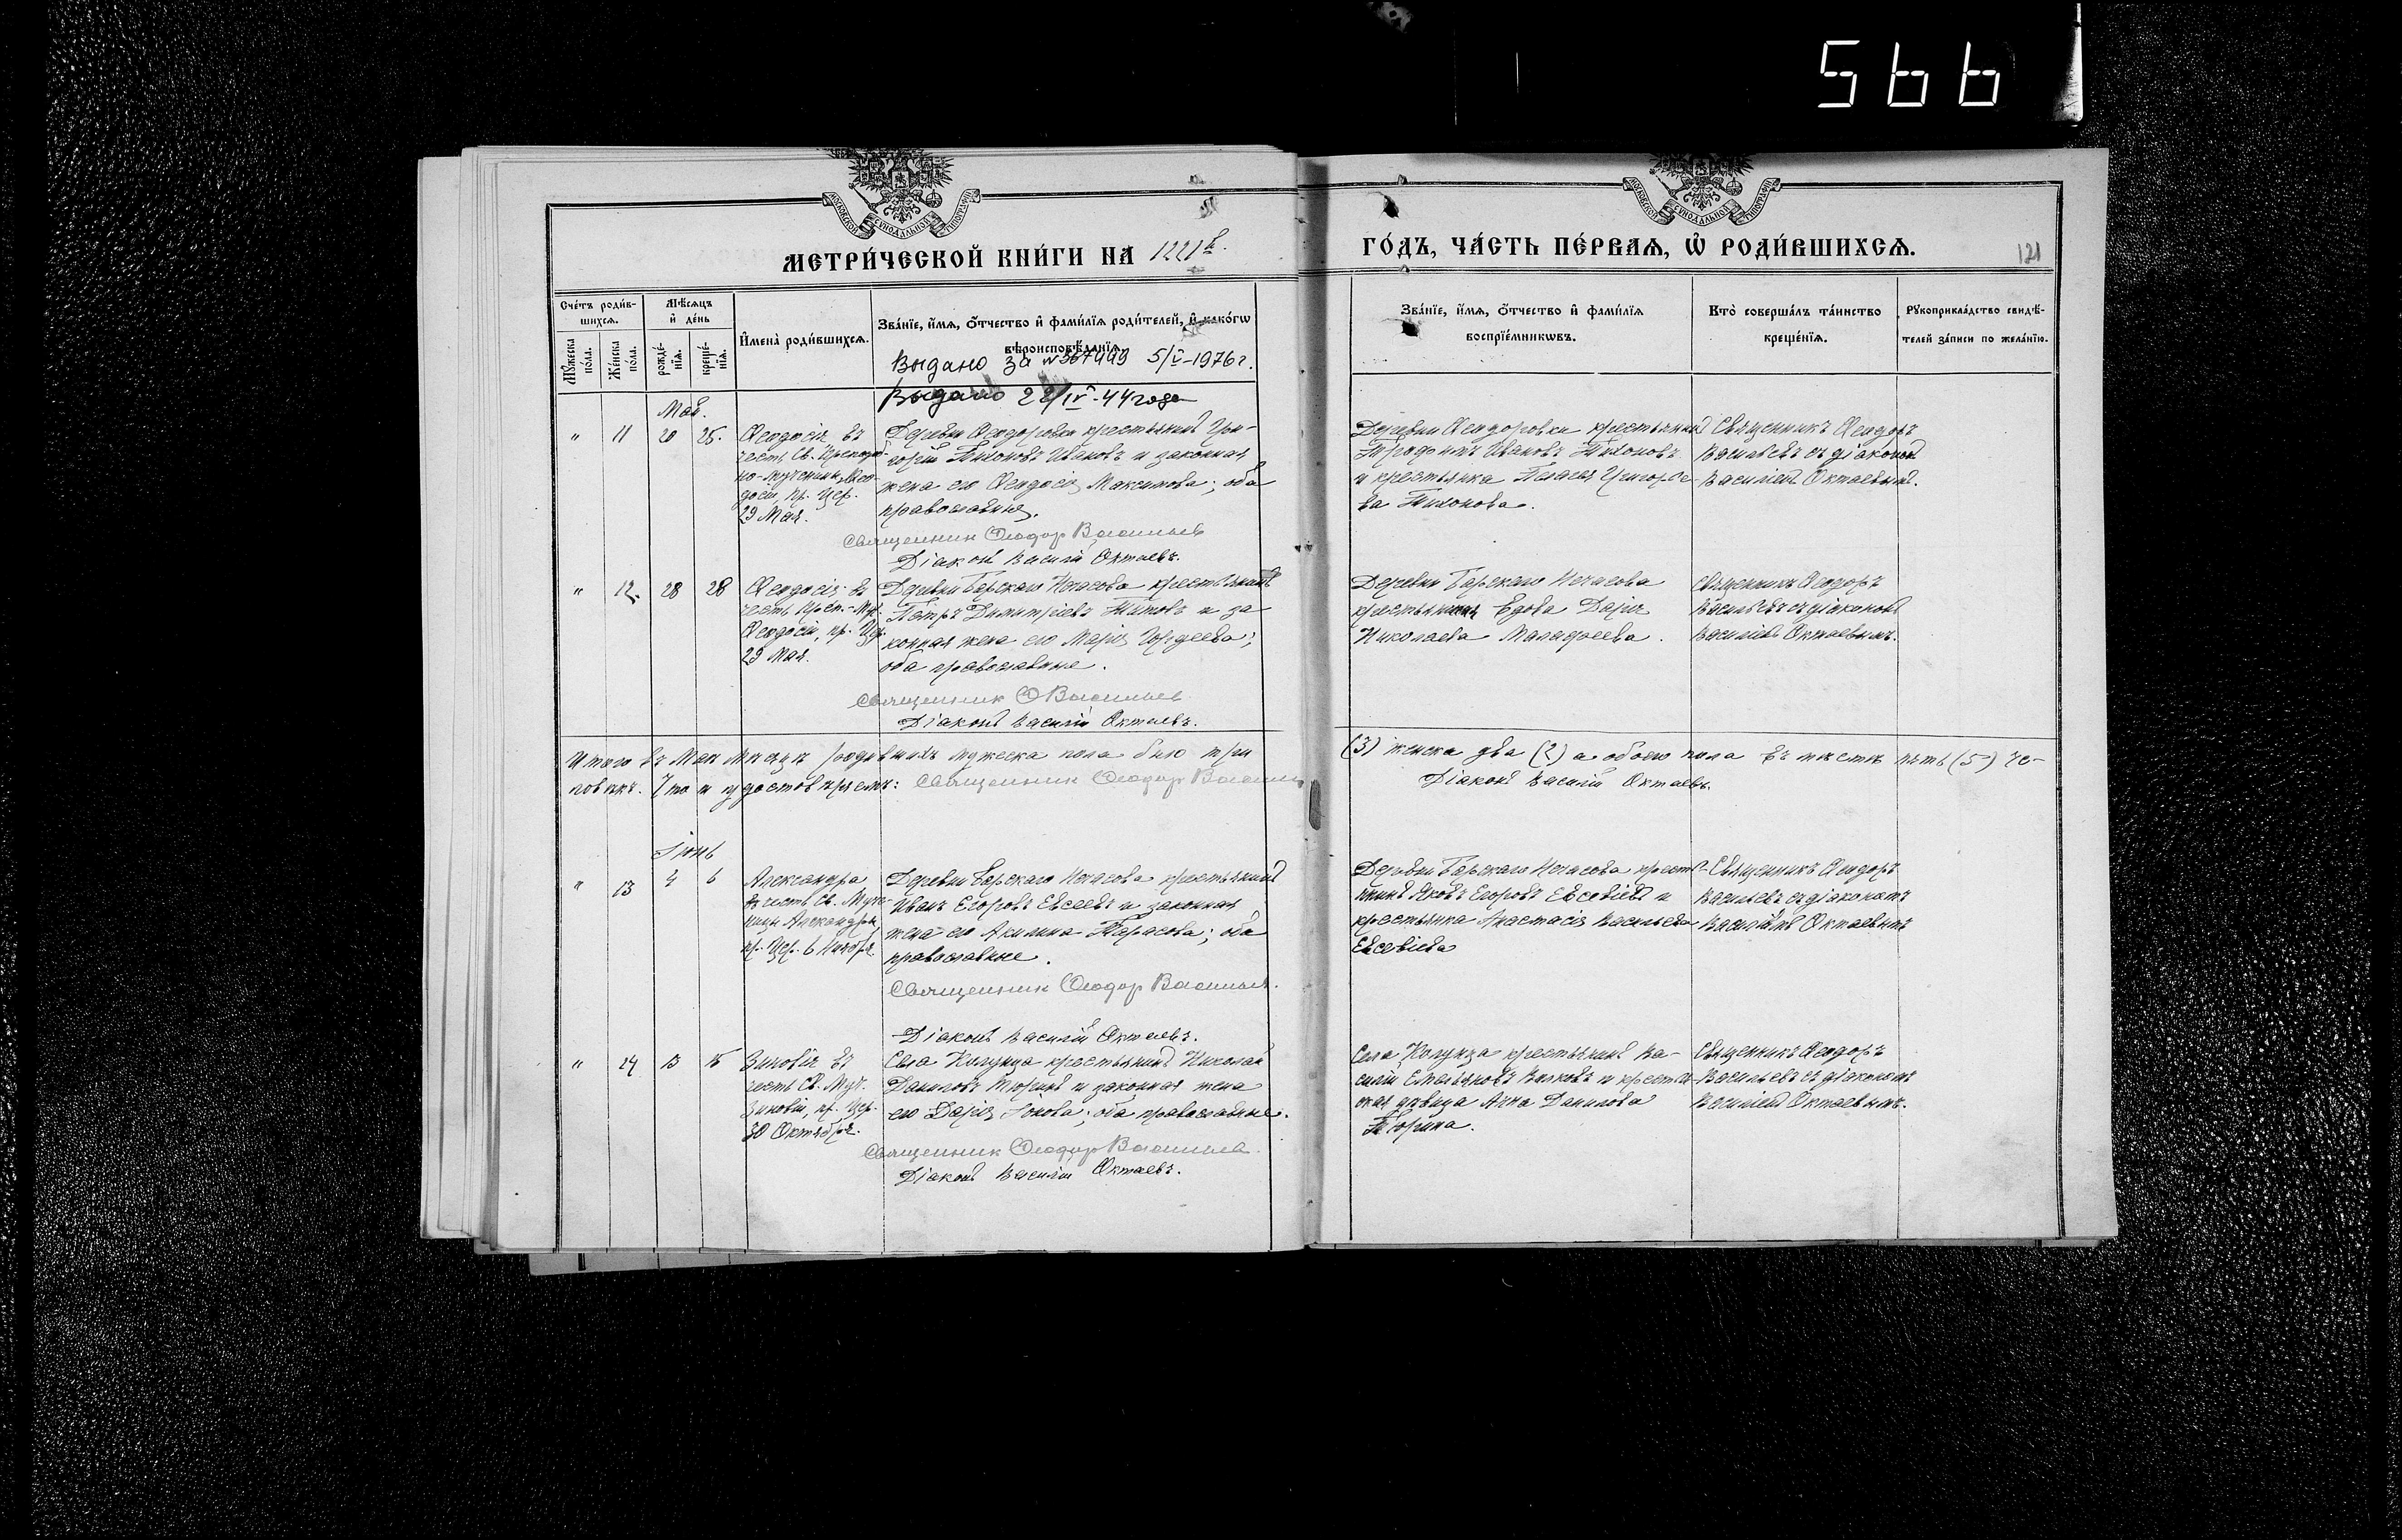 566
МОСКОВСКОЙ СУНОДАЛЬНОЙ ТИПОГРАФІИ
МОСКОВСКОЙ СУНОДАЛЬНОЙ ТИПОГРАФІИ
МЕТРИ́ЧЕСКОЙ КНИ́ГИ НА
ГО́ДЪ, ЧА́СТЬ ПЕ́РВАѦ, Ѡ҆ РОДИ́ВШИХСѦ.
121
Сче́тъ роди́в-
шихсѧ.
Мѣ́сѧцъ
и҆ де́нь
Му́жеска
по́ла.
Же́нска
по́ла.
рожде́-
нїѧ.
креще́-
нїѧ.
И҆мена̀ роди́вшихсѧ.
Зва́нїе, и҆́мѧ, ѻ҆́тчество и҆ фами́лїѧ роди́телей, и҆ како́гѡ
вѣроисповѣ́данїѧ.
Зва́нїе, и҆́мѧ, ѻ҆́тчество и҆ фами́лїѧ
воспрїе́мникѡвъ.
Кто̀ соверша́лъ та́инство
креще́нїѧ.
Рꙋкоприкла́дство свидѣ́-
телей за́писи по жела́нїю.
Выдано за № 367999 5/V-1976 г.
Выдано 22/IV-44 года
Май.
" 11 20 25.
Ѳеодосія, въ
честь Св. Преподоб-
но-мученицы Ѳео-
досіи, пр. Цер.
29 Мая.
Деревни Ѳеодоровки крестьянинъ Гри-
горій Тихоновъ Ивановъ и законная
жена его Ѳеодосія Максимова; оба
православные.
Священник Ѳеодор Васильев
Діаконъ Василій Октаевъ.
Деревни Ѳеодоровки крестьянинъ
Трофимъ Ивановъ Тихоновъ
и крестьянка Пелагея Григорье-
ва Тихонова.
Священникъ Ѳеодоръ
Васильевъ съ діакономъ
Василіемъ Октаевымъ.
" 12. 28 28
Ѳеодосія въ
честь Преп.-Муч.
Ѳеодосіи, пр. Цер.
29 Мая.
Деревни Барскаго Нечасова крестьянинъ
Петръ Димитріевъ Титовъ и за
конная жена его Марія Гордеева;
оба православные.
Священник Ѳ Васильев
Діаконъ Василій Октаевъ.
Деревни Барскаго Нечасова
крестьянская вдова Дарія
Николаева Малафеева.
Священникъ Ѳеодоръ
Васильевъ съ діакономъ
Василіемъ Октаевымъ.
Итого въ Маѣ мѣсяцѣ родившихъ мужеска пола было три
(3) женска два (2) а обоего пола въ мѣстѣ пять (5) че-
ловѣкъ. Что и удостовѣряемъ: Священник Ѳеодор Васильев
Діаконъ Василій Октаевъ.
Іюнь
" 13 4 6
Александра
въ честь Св. Муче-
ницы Александры,
пр. Цер. 6 Ноября.
Деревни Барскаго Нечасова крестьянинъ
Иванъ Егоровъ Евсеевъ и законная
жена его Акилина Тарасова; оба
православные.
Священник Ѳеодор Васильев.
Діаконъ Василій Октаевъ.
Деревни Барскаго Нечасова кресть-
янинъ Яковъ Егоровъ Евсевіевъ и
крестьянка Анастасія Васильева
Евсевіева
Священникъ Ѳеодоръ
Васильевъ съ діакономъ
Василіемъ Октаевымъ
" 14 13 15
Зиновія въ
честь Св. Муч.
Зиновіи, пр. Цер.
30 Октября.
Села Колунца крестьянинъ Николай
Даниловъ Тюринъ и законная жена
его Дарія Іонова; оба православные.
Священник Ѳеодор Васильев.
Діаконъ Василій Октаевъ.
Села Колунца крестьянинъ Ва-
силій Емельяновъ Волковъ и крестьян-
ская дѣвица Анна Данилова
Тюрина.
Священникъ Ѳеодоръ
Васильевъ съ діакономъ
Василіемъ Октаевымъ.